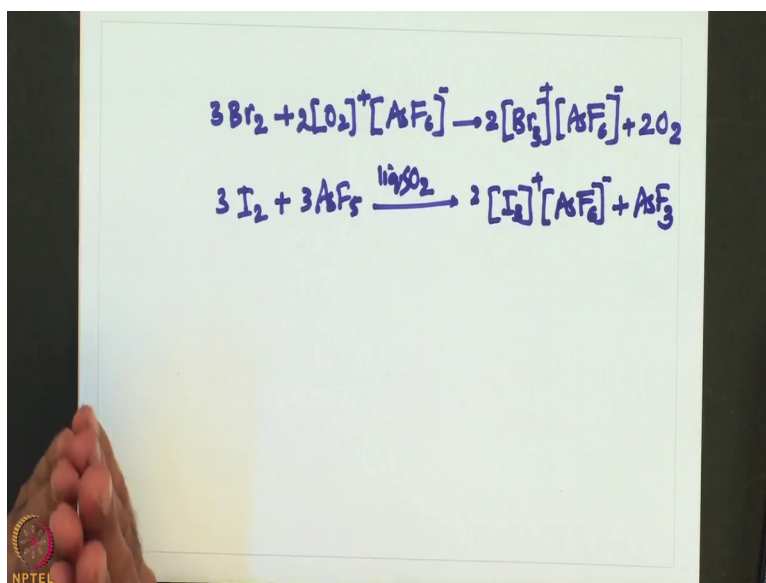 3 Br₂ + 2[O₂]⁺[AsF₆]⁻ → 2[Br₃]⁺[AsF₆]⁻ + 2O₂
3 I₂ + 3AsF₅ —liqSO₂→ 2[I₃]⁺[AsF₆]⁻ + AsF₃
NPTEL